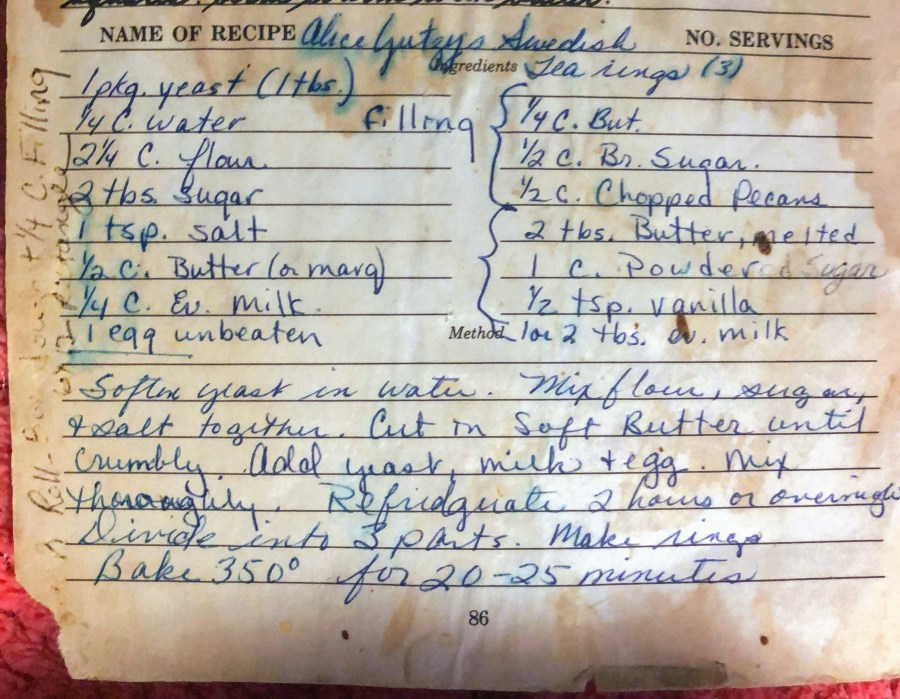 NAME OF RECIPE Alice Gutzys Swedish NO. SERVINGS
Ingredients Tea rings (3)
1 pkg. yeast (1 tbs.)
1/4 C. water
2 1/4 C. flour
2 tbs. Sugar
1 tsp. salt
1/2 C. Butter (or marg)
1/4 C. Ev. Milk
1 egg unbeaten
filling
1/4 C. But.
1/2 C. Br. Sugar.
1/2 C. Chopped Pecans
2 tbs. Butter, melted
1 C. Powdered Sugar
1/2 tsp. vanilla
Method 1 or 2 tbs. ev. milk
Soften yeast in water. Mix flour, sugar,
& salt together. Cut in Soft Butter until
Crumbly. Add yeast, milk + egg. Mix
thoroughly. Refridguate 2 hours or overnigh
Divide into 3 parts. Make rings
Bake 350° for 20-25 minutes
86
Roll + 1/4 C. Filling